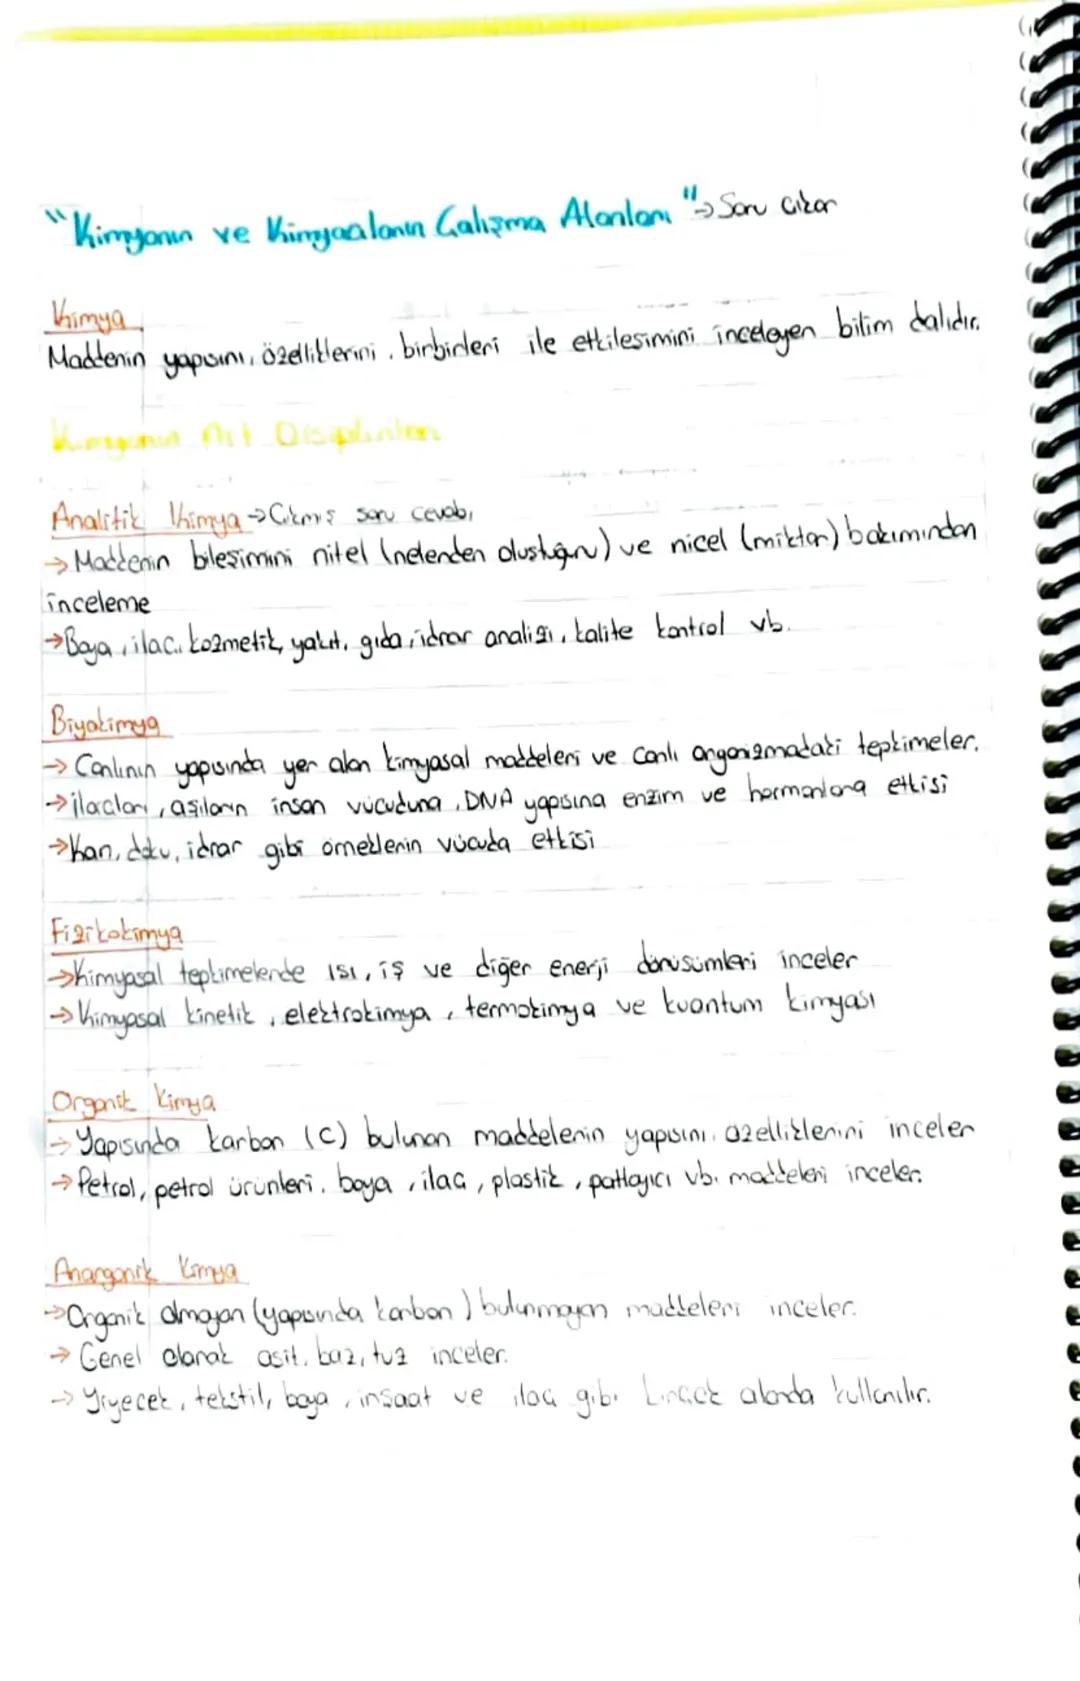 "Kimyanın ve Kimyacıların Çalışma Alanları" → Soru Çıkar
Kimya
Maddenin yapısını, özelliklerini, birbirleri ile etkileşimini inceleyen bilim dalıdır.
Kimyanın Alt Disiplinleri
Analitik Kimya → Çıkmış soru cevabı
→ Maddenin bileşimini nitel (nelerden oluştuğunu) ve nicel (miktar) bakımından
inceleme
→ Boya, ilaç, kozmetik, yakıt, gıda, idrar analizi, kalite kontrol vb.
Biyokimya
→ Canlının yapısında yer alan kimyasal maddeleri ve canlı organizmadaki tepkimeler.
→ ilaçların, aşıların insan vücuduna, DNA yapısına enzim ve hormonlara etkisi
→ Kan, doku, idrar gibi örneklerin vücuda etkisi
Fizikokimya
→ Kimyasal tepkimelerde ısı, iş ve diğer enerji dönüşümleri inceler
→ Kimyasal kinetik, elektrokimya, termokimya ve kuantum kimyası
Organik Kimya
→ Yapısında karbon (C) bulunan maddelerin yapısını, özelliklerini inceler
→ Petrol, petrol ürünleri, boya, ilaç, plastik, patlayıcı vb. maddeleri inceler.
Anorganik Kimya
→ Organik olmayan (yapısında karbon) bulunmayan maddeleri inceler.
→ Genel olarak asit, baz, tuz inceler.
→ Yiyecek, tekstil, boya, inşaat ve ilaç gibi birçok alanda kullanılır.